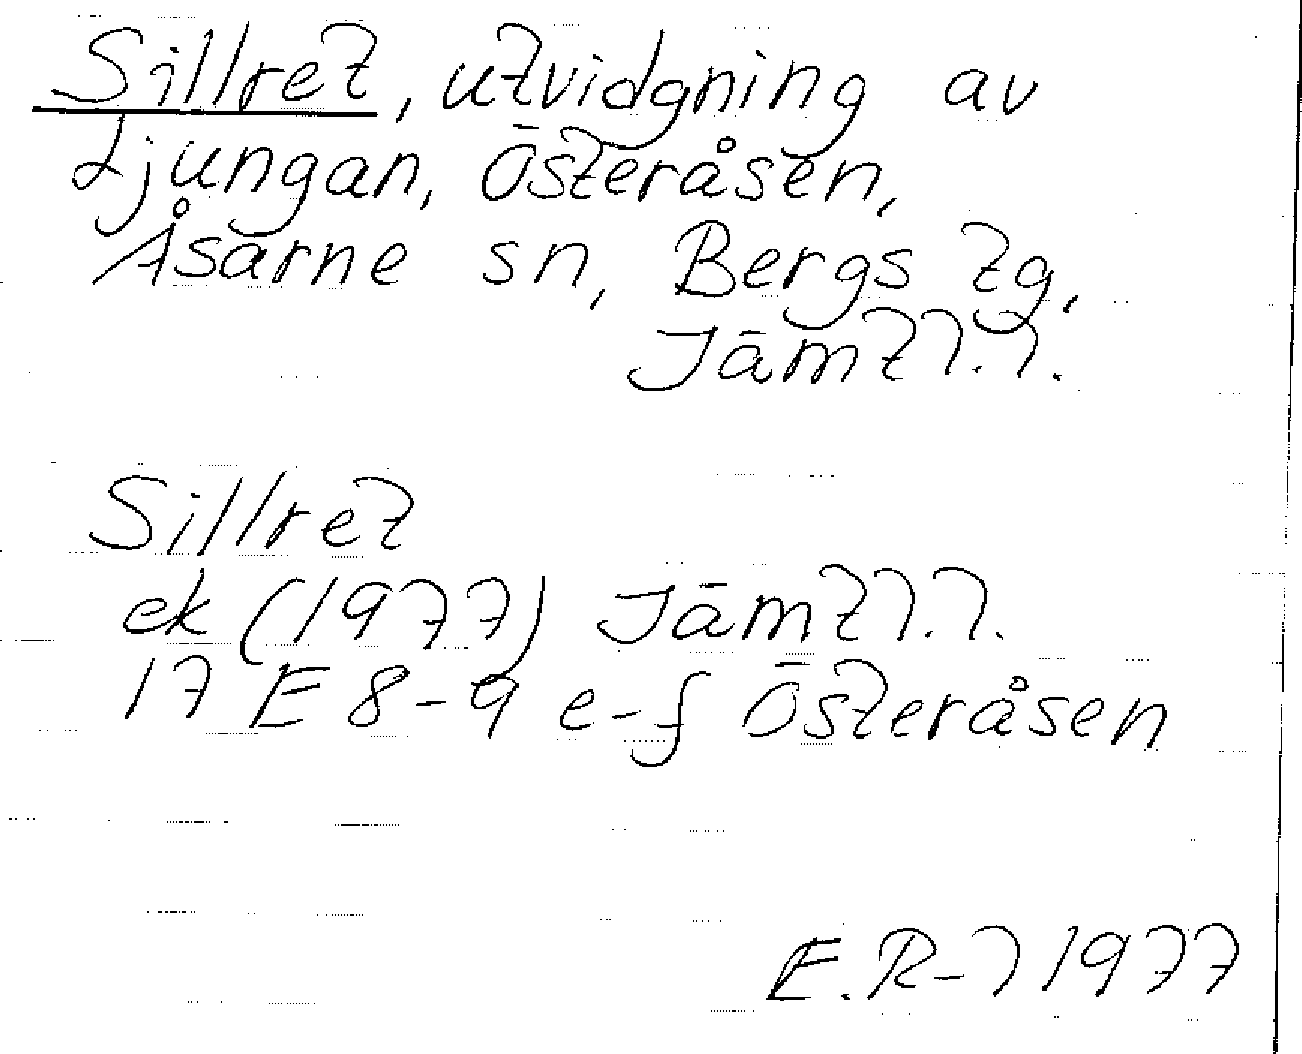 Sillret, utvidgning av
Ljungan, Österåsen,
Åsarne sn, Bergs tg,
Jämtl.l.
Sillret
ek (1977) Jämtl.l.
17 E 8-9 e-f Österåsen
E.R-l 1977